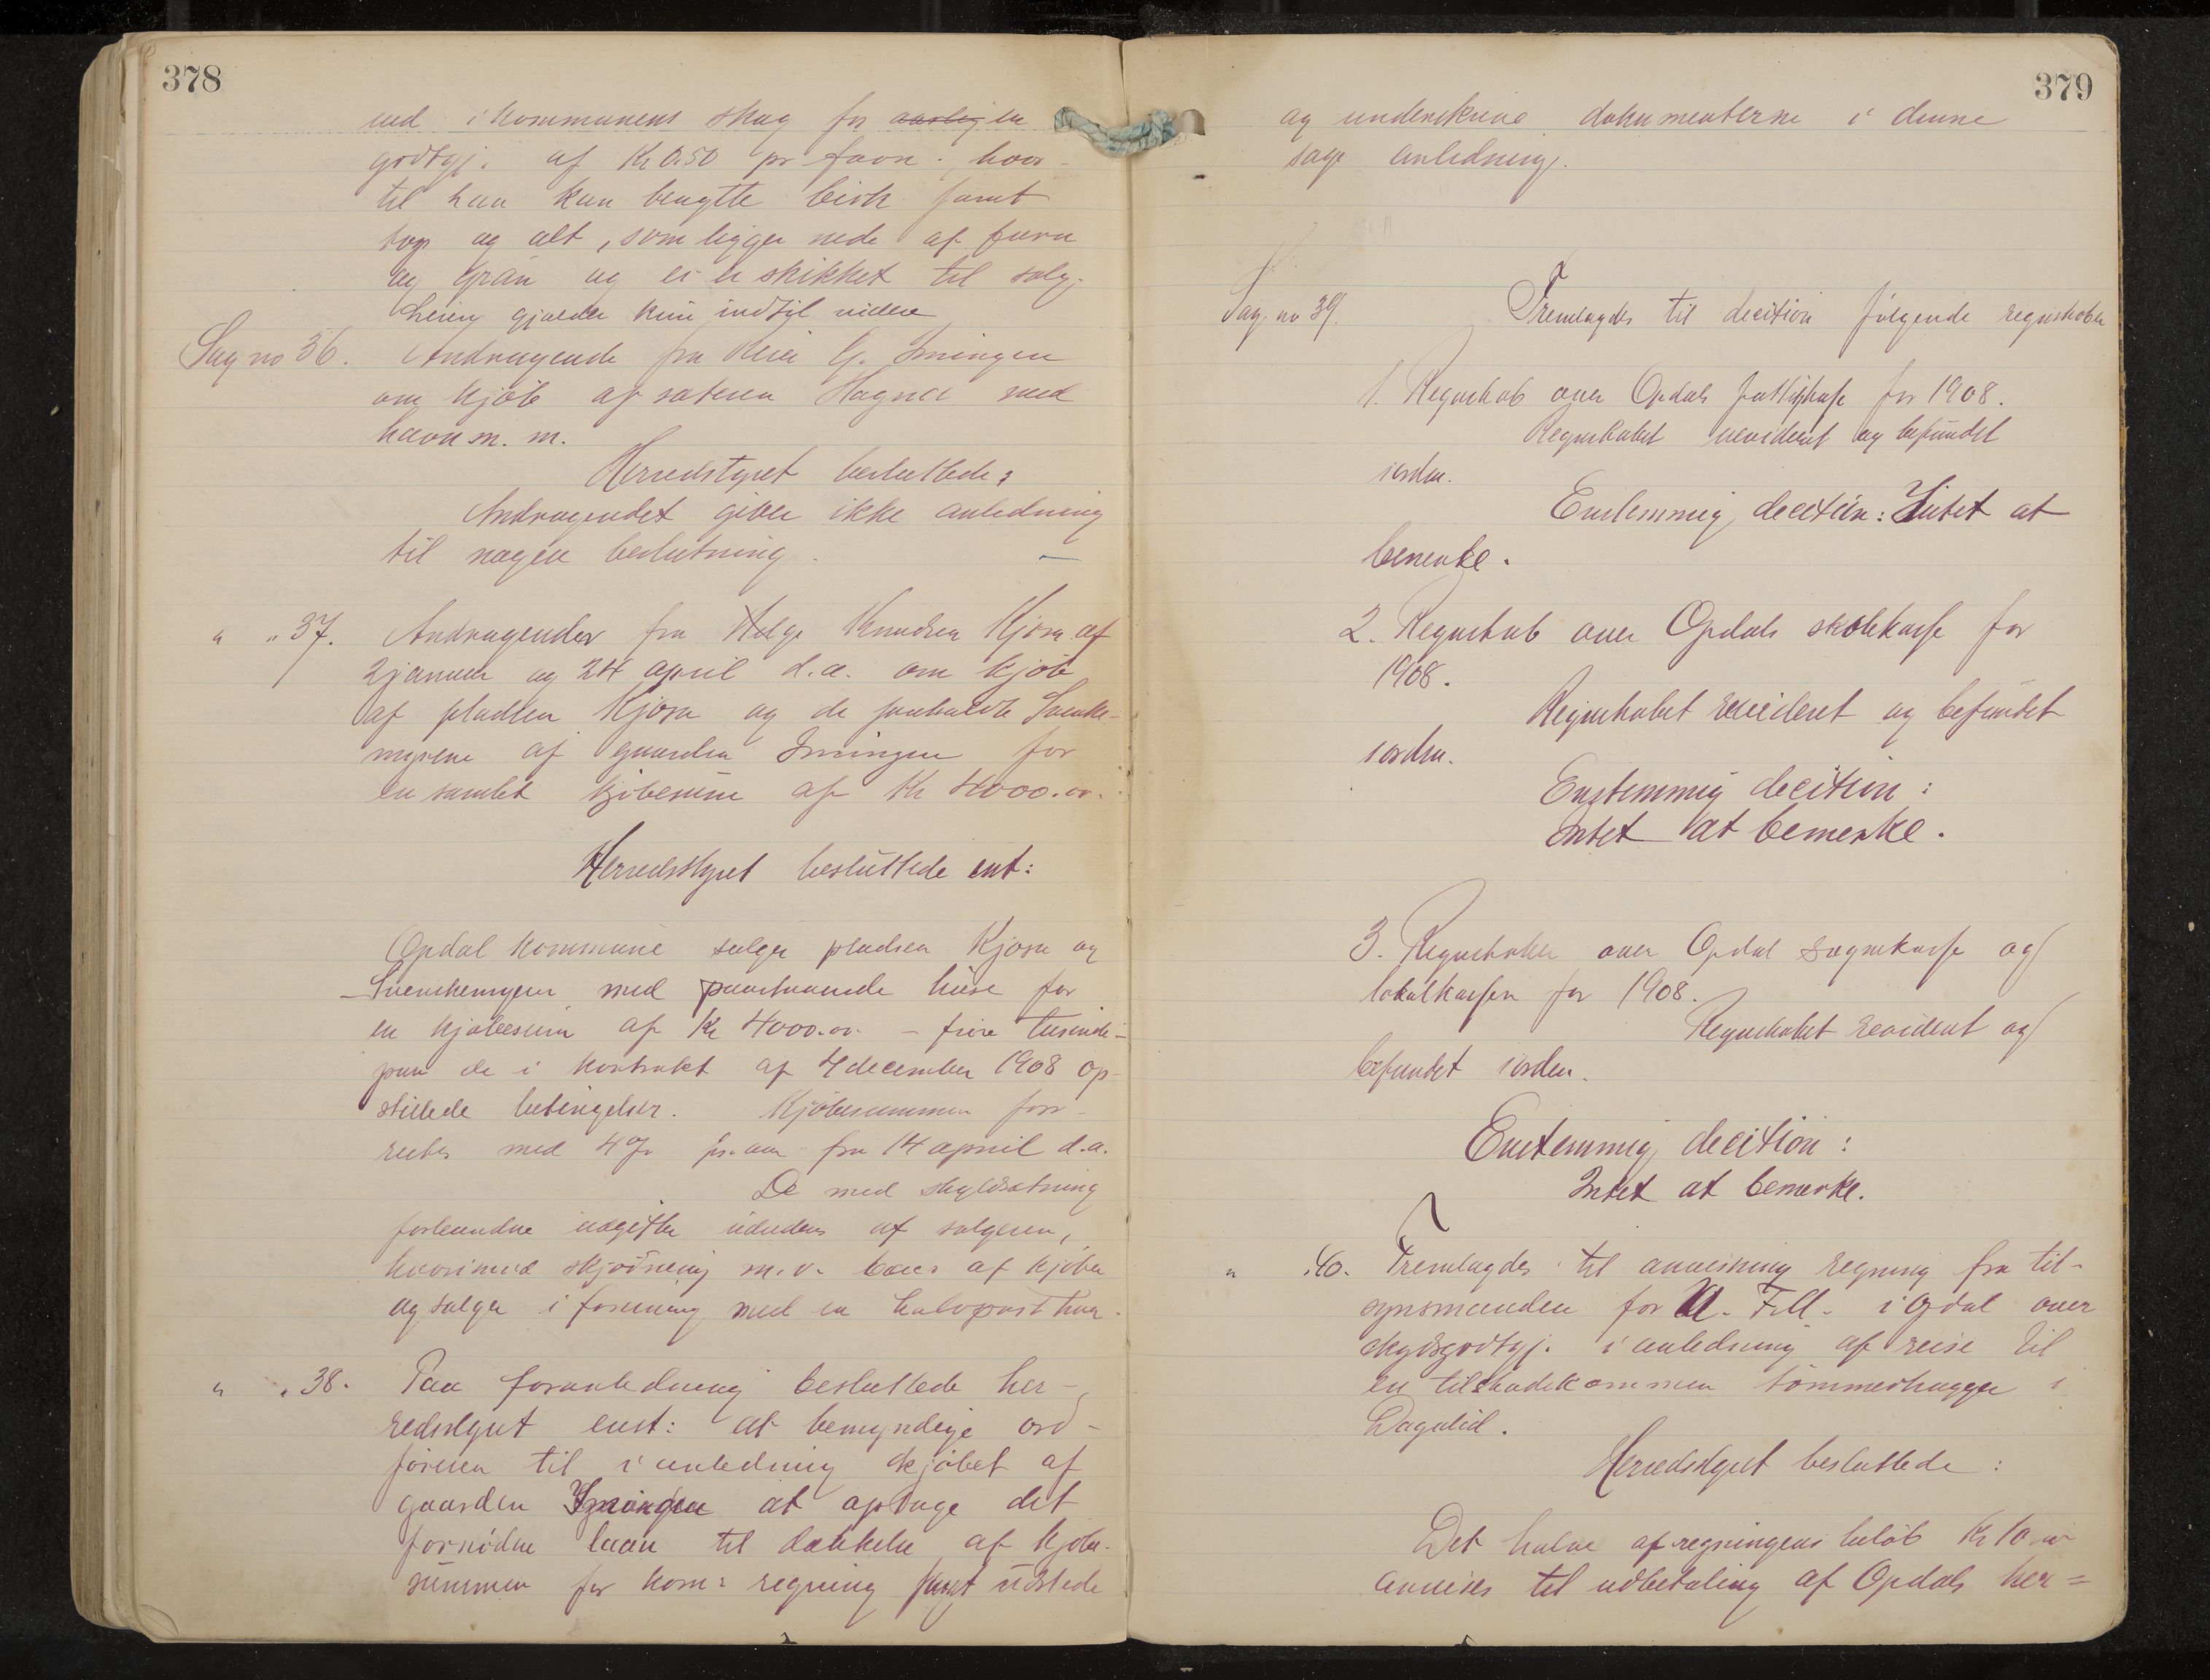 378
ved i kommunens skog for aarlig en
godtgj. af Kr 0.50 pr favn. hvor-
til han kan benytte birk samt
top og alt, som ligger nede af furu
og gran og ei er skikket til salg.
Leien gjælder kun indtil videre
Sag no 36. Andragende fra G. Imingen
om kjøb af sæteren Hagna med
havn m. m.
Herredstyret besluttede:
Andragendet giver ikke anledning
til nogen beslutning.
" " 37. Andragender fra Helge Knudsen Kjøsn af
2 januar og 24 april d.a. om kjøb
af pladsen Kjøsn og de saakaldte Svenke-
myrene af gaarden Imingen for
en samlet kjøbesum af Kr 4000.00.
Herredsstyret besluttede ent:
Opdal kommune sælger pladsen Kjøsn og
Svenkemyren med paastaaende huse for
en kjøbesum af Kr 4000.00 – fire tusinde –
paa de i kontrakt af 4 december 1908 op-
stillede betingelser. Kjøbesummen for-
rentes med 4 % pr. aar fra 14 april d.a.
De med skyldsætning
forbundne udgifter udredes af sælgeren,
hvorimod skjødning m.v. bæres af kjøber
og sælger i forening med en halvpart hver.
" " 38. Paa foranledning besluttede her-
redsstyret enst: at bemyndige ord-
føreren til i anledning kjøbet af
gaarden Imingen at optage det
fornødne laan til dækkelse af kjøbe-
summen for kom: regning samt udstede
379
og underskrive dokumenterne i denne
sags anledning.
Sag no 39. Fremlagdes til decition følgende regnskaber
1. Regnskab over Opdals fattigkasse for 1908.
Regnskabet revideret og befundet
iorden.
Enstemmig decition: Intet at
bemerke.
2. Regnskab over Opdals skolekasse for
1908.
Regnskabet revideret og befundet
iorden.
Enstemmig decition:
Intet at bemerke.
3. Regnskaber over Opdal sognekasse og
lokalkassen for 1908.
Regnskabet revideret og
befundet iorden.
Enstemmig decition:
Intet at bemerke.
" " 40. Fremlagdes til anvisning regning fra til-
synsmanden for U. F. M. i Opdal over
skydsgodtgj. i anledning af reise til
en tilskadekommen tømmerhugger i
Dagalid.
Herredsstyret besluttede:
Det halve af regningens beløb Kr 10.00
anvises til udbetaling af Opdals her=